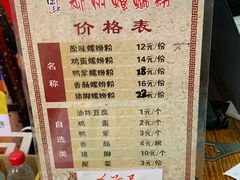 柳州螺蛳粉
价格表
名称
原味螺蛳粉 12元/份
鸡蛋螺蛳粉 14元/份
鸭掌螺蛳粉 18元/份
香肠螺蛳粉 16元/份
猪脚螺蛳粉 22元/份
自选类
油炸豆腐 1元/个
鸡蛋 2元/个
鸭掌 3元/个
香肠 4元/根
猪脚 10元/个
配菜 3元/份